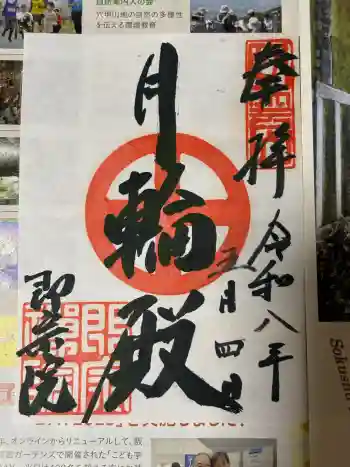 奉拝
令和八年
五月四日
月輪殿
即宗院
Sokushu
自然案内人の会
六甲山地の自然の多様性
を伝える環境教育
を実施しました!
、オンラインからリニューアルして、阪
宮ガーデンズで開催された「こども学